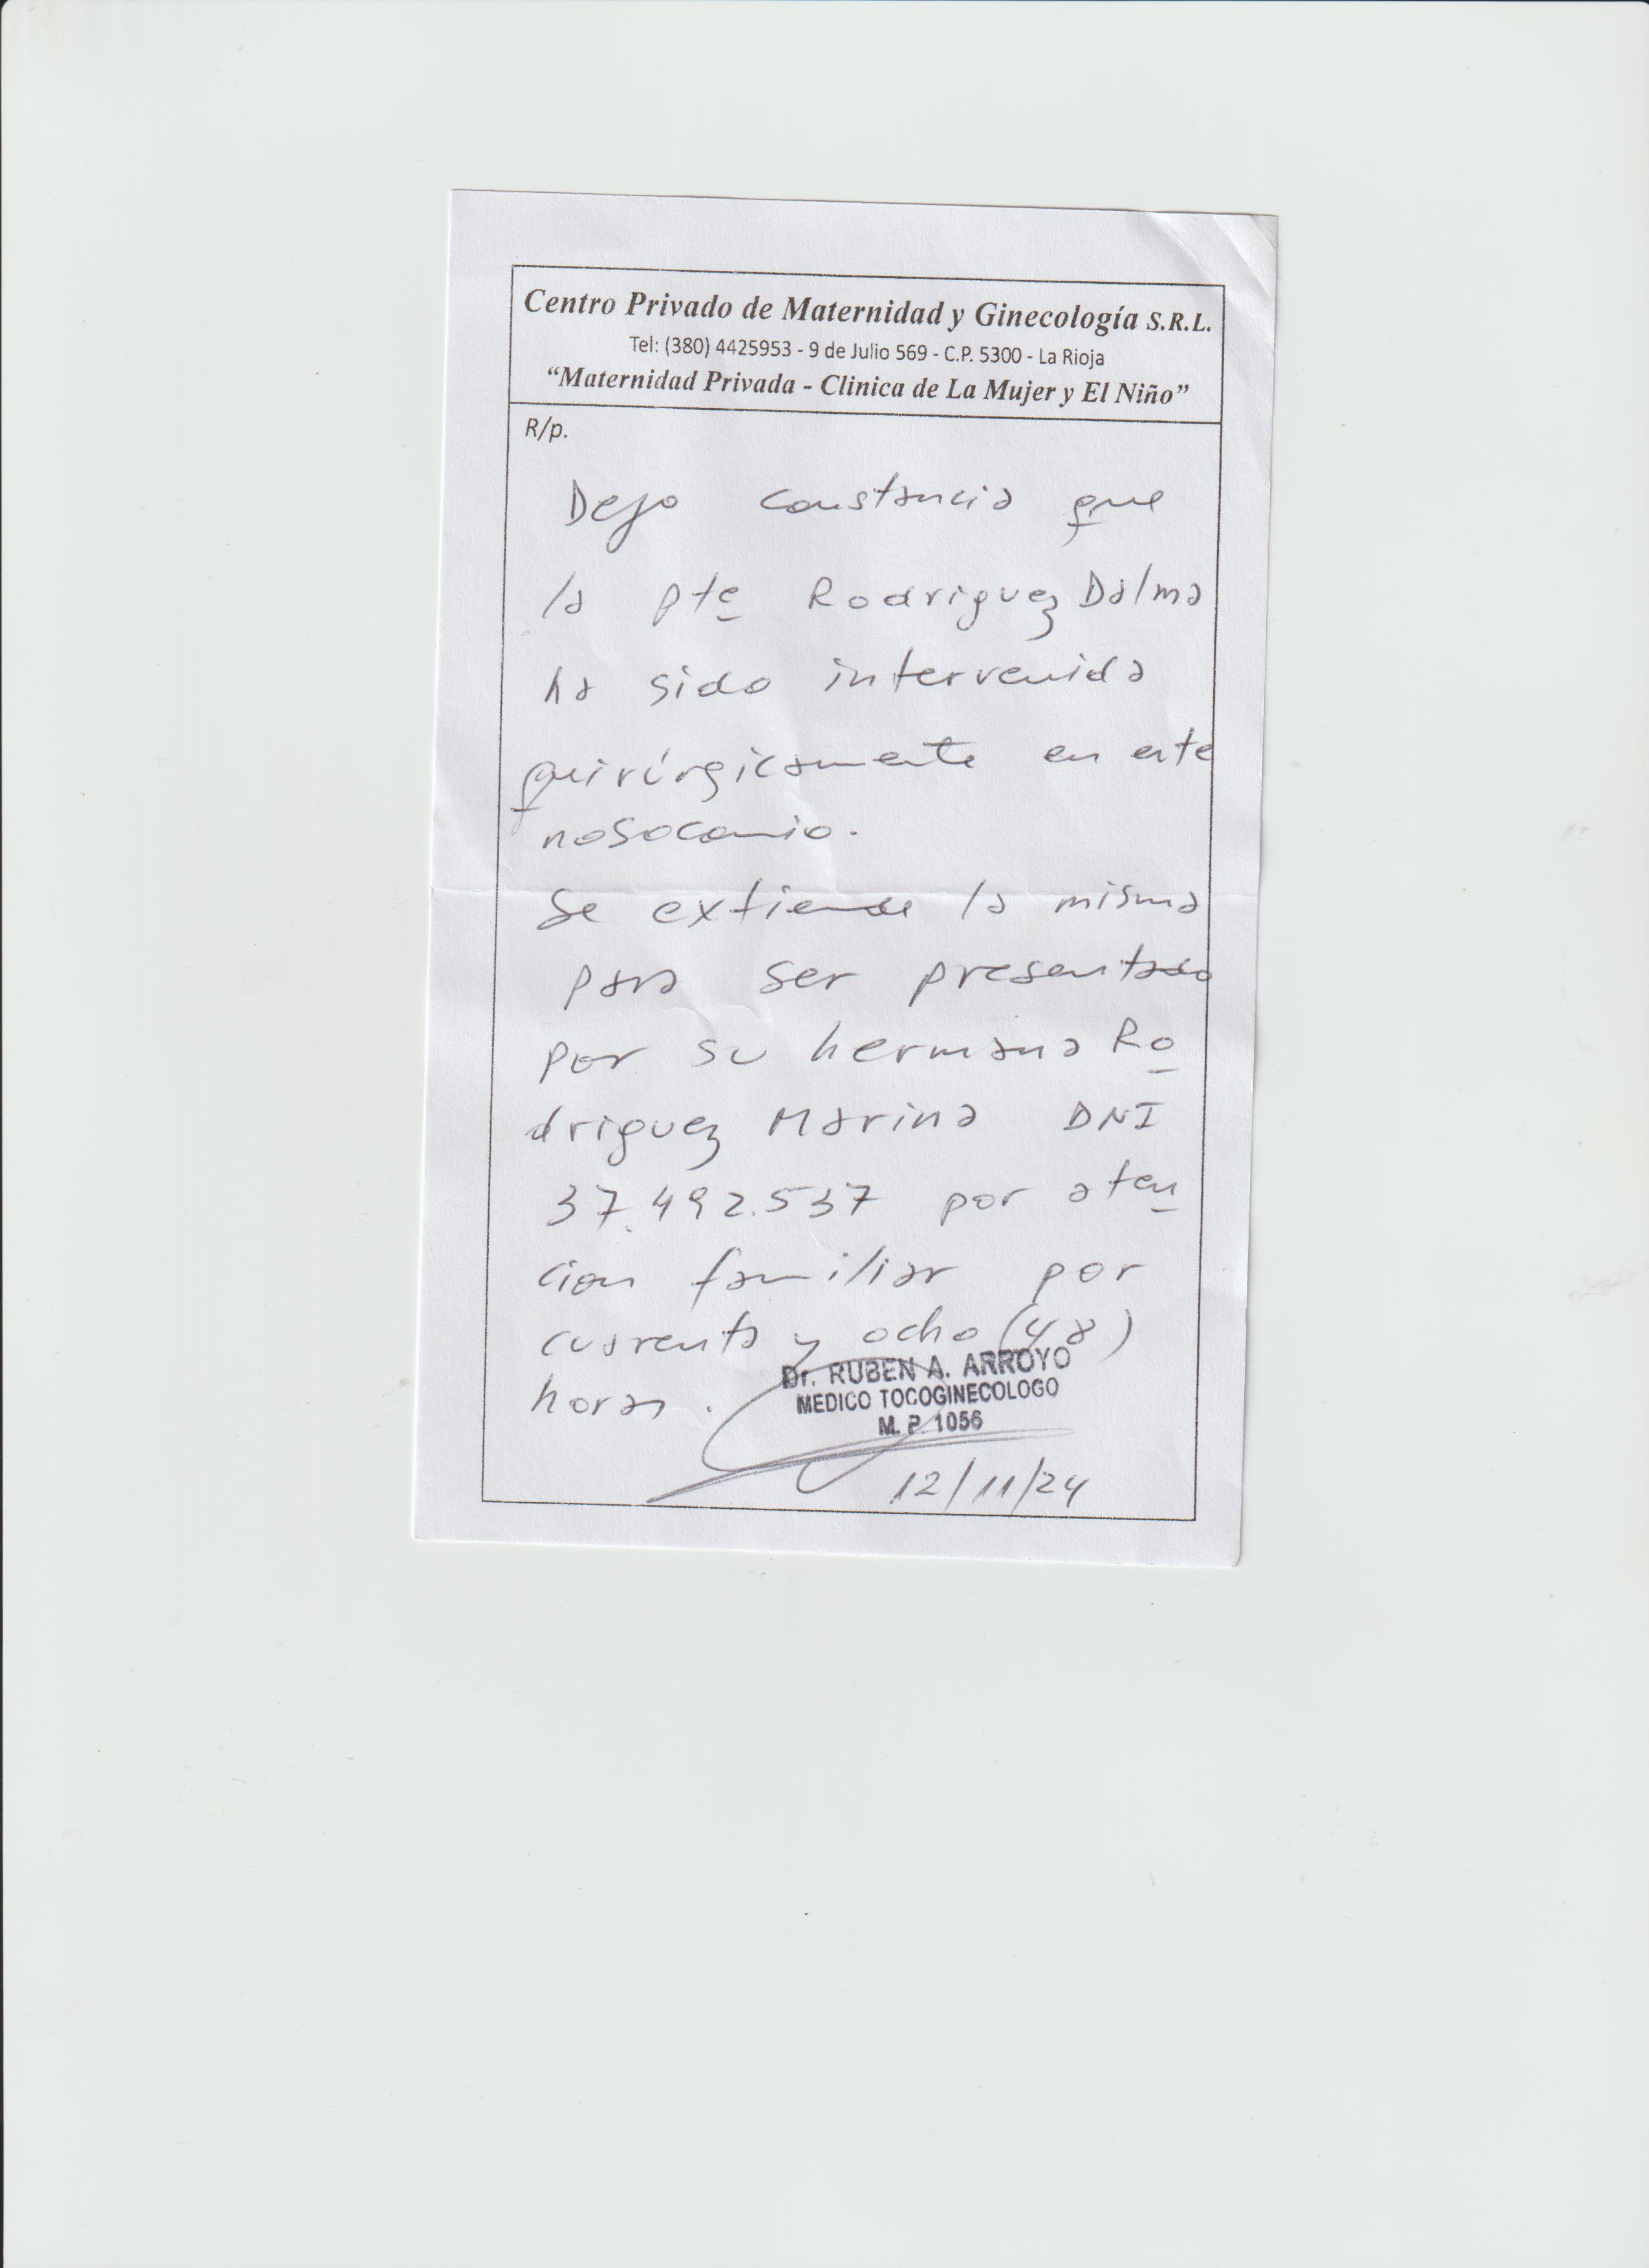 Centro Privado de Maternidad y Ginecología S.R.L.
Tel: (380) 4425953 - 9 de Julio 569 - C.P. 5300 - La Rioja
“Maternidad Privada - Clinica de La Mujer y El Niño”
R/p.
Dejo constancia que
la pte Rodriguez Dalma
ha sido intervenida
quirúrgicamente en este
nosocomio.
Se extiende la misma
para ser presentado
por su hermana Ro
driguez Marina DNI
37.492.537 por aten
cion familiar por
cuarenta y ocho (48)
horas.
Dr. RUBEN A. ARROYO
MEDICO TOCOGINECOLOGO
M. P. 1056
12/11/24